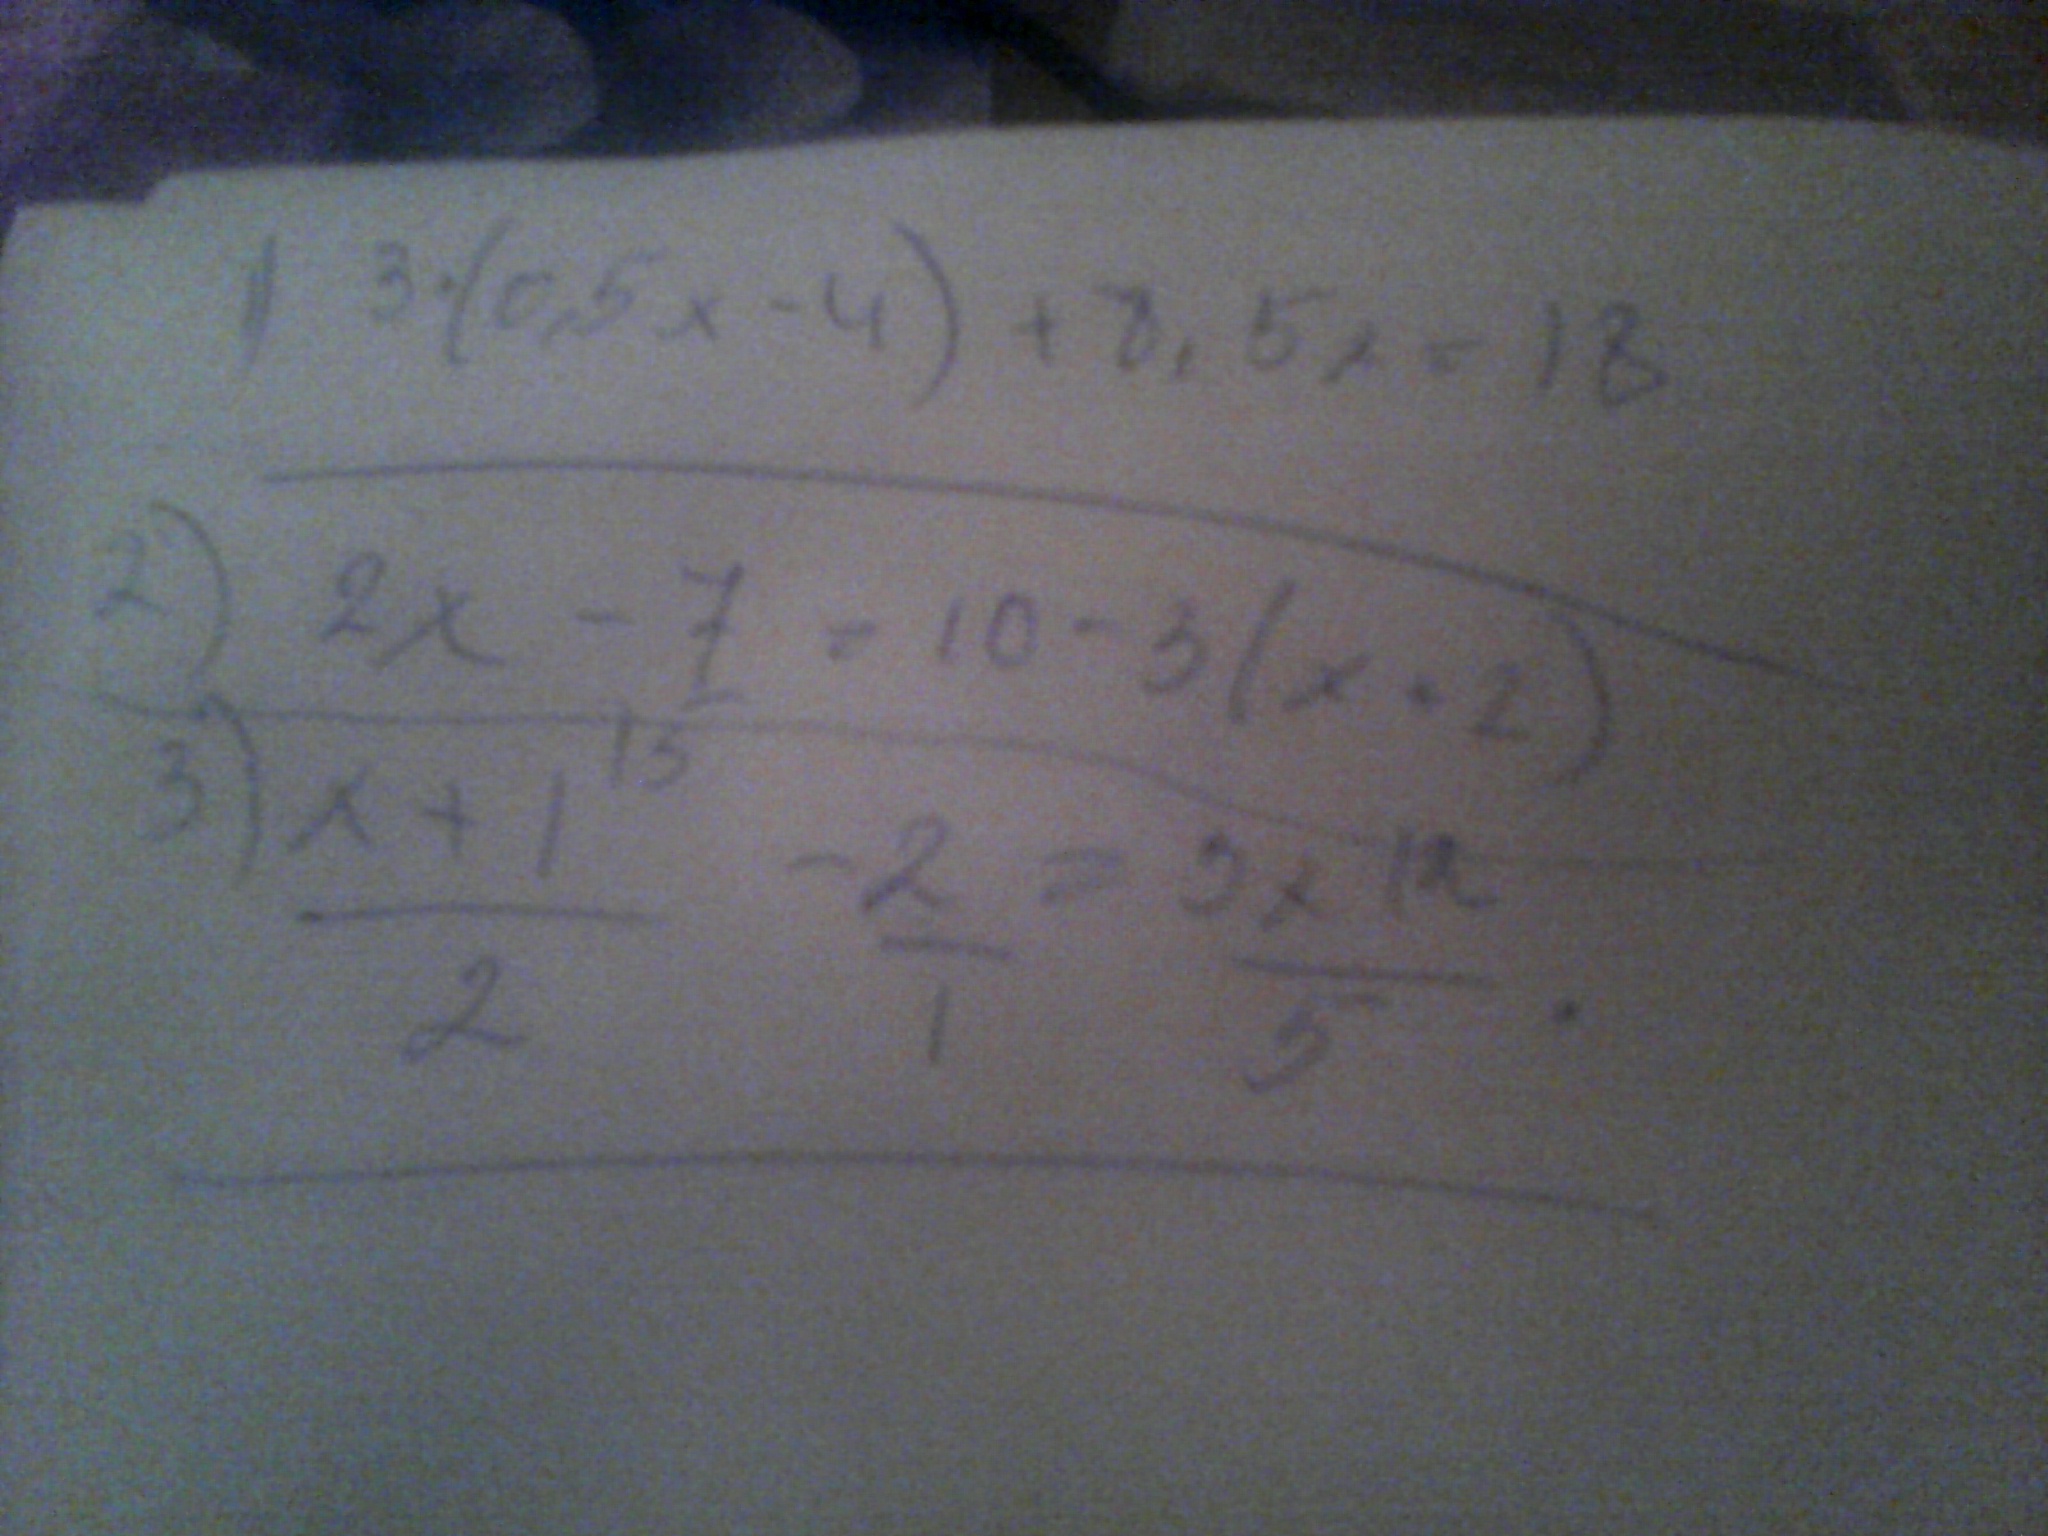 1) 3·(0,5x-4)+8,5x=18
2) 2x - 7 = 10 - 3(x+2)
3) x+1 |5 / 2 - 2/1 = 3x |2 / 5 .